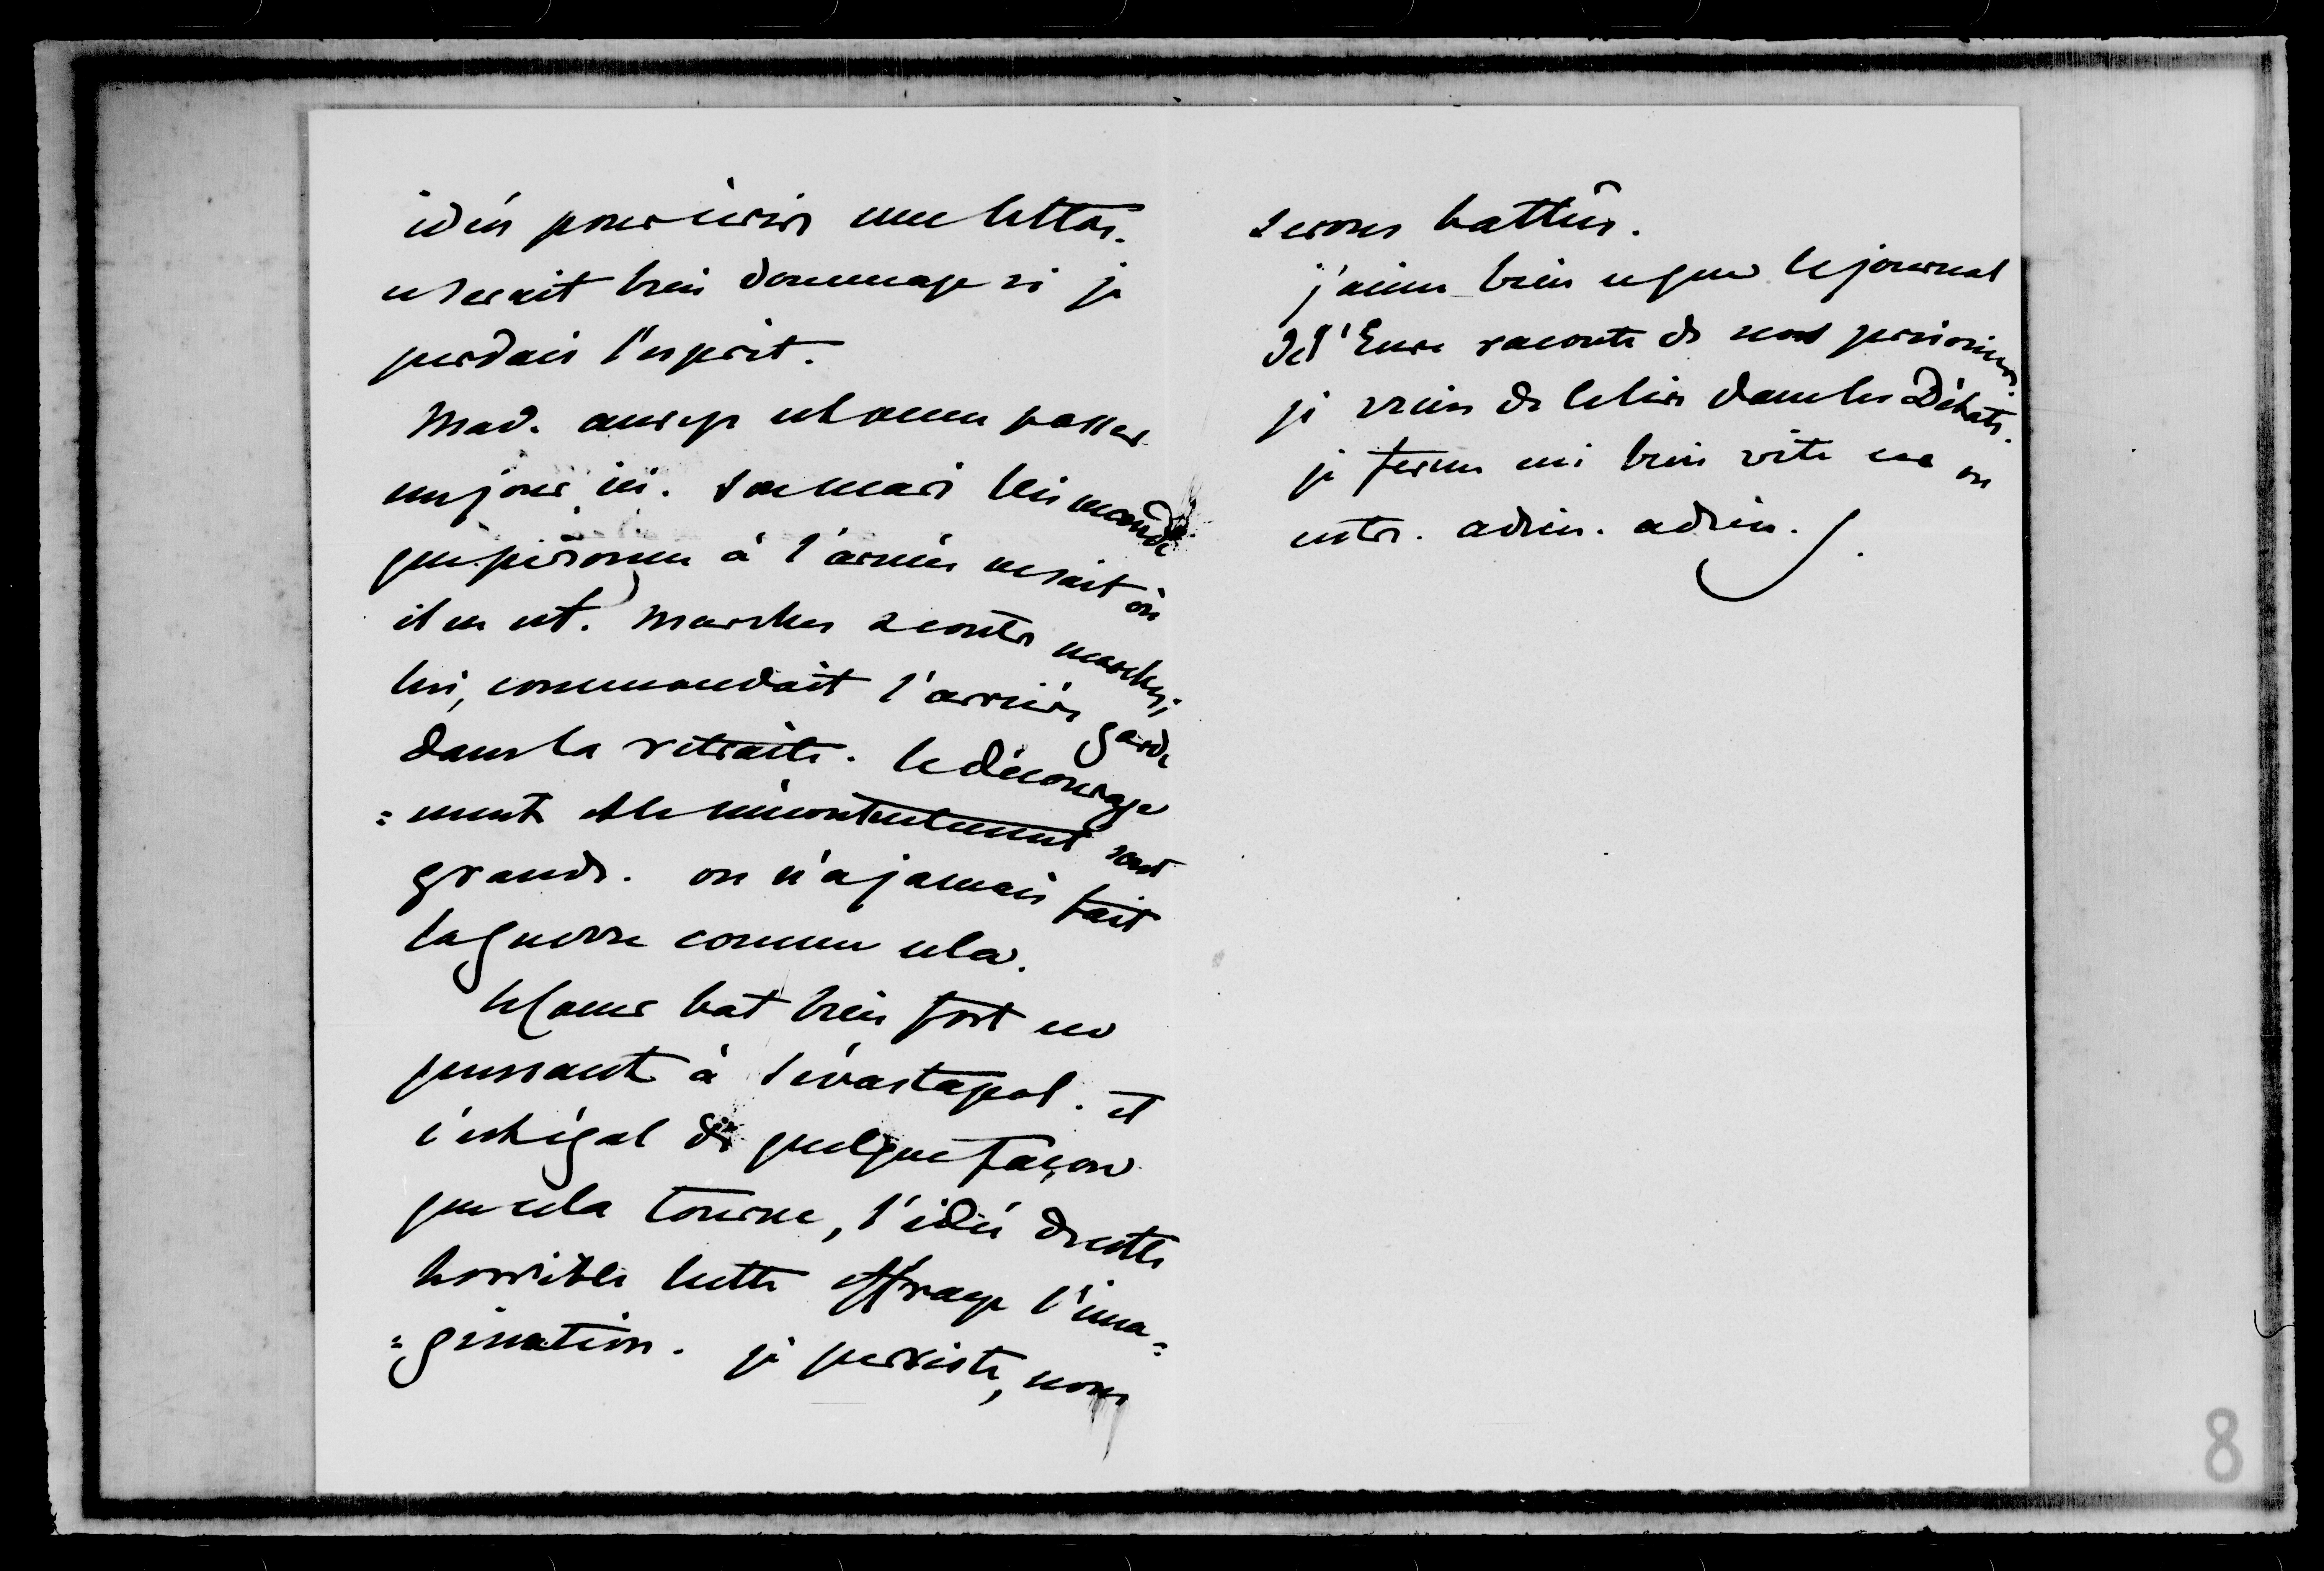 idées pour écrire une lettre.
ce serait bien dommage si je
perdais l'esprit.
Mad. aurep est venue passer
un jour ici. son mari lui mande
que personne à l'armée ne sait où
il en est. Marches & contre marches;
lui, commandait l'arrière garde
dans la retraite. le décourage
=ment et le mécontentement sont
grands. on n'a jamais fait
la guerre comme cela.
le cœur bat bien fort en
pensant à Sévastopol. et
c'est égal de quelque façon
que cela tourne, l'idée de cette
horrible lutte effraye l'ima=
=gination. je persiste, nous
serons battus.
j'aime bien ce que le journal
de l'Eure raconte de nos prisonniers
je viens de le lire dans les Débats.
je ferme ceci bien vite car on
entre. adieu. adieu.
8